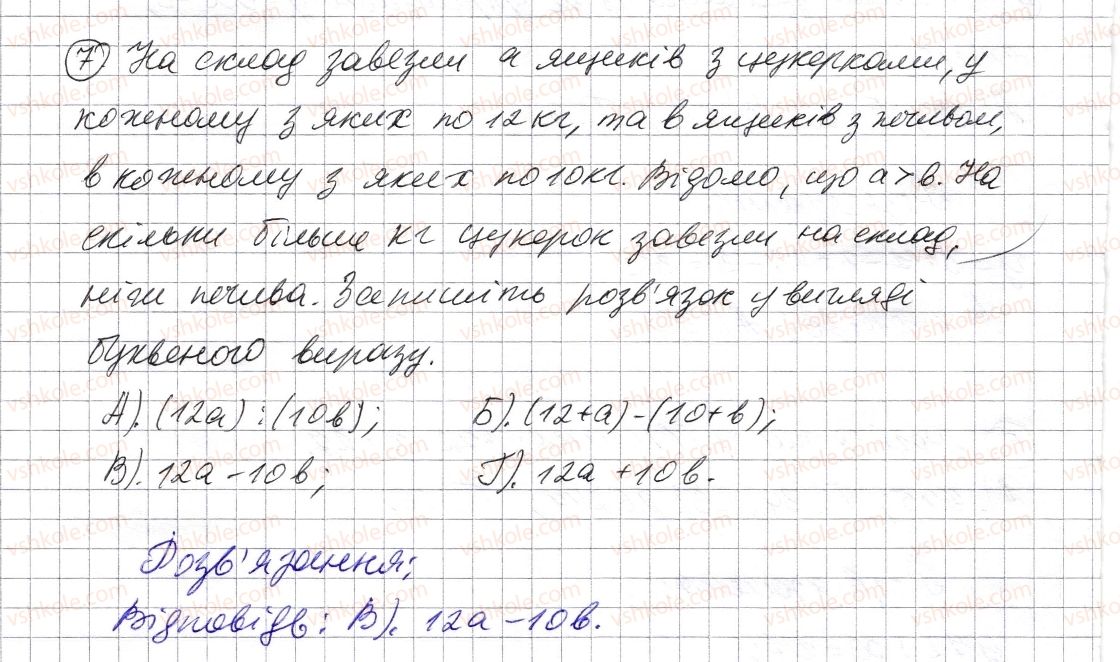 7) На склад завезли а ящиків з цукерками, у
кожному з яких по 12 кг, та в ящиків з печивом,
в кожному з яких по 10 кг. Відомо, що а > в. На
скільки більше кг цукерок завезли на склад,
ніж печива. Запишіть розв'язок у вигляді
буквеного виразу.
А). (12а) : (10в); Б). (12+а)-(10+в);
В). 12а - 10в; Г). 12а + 10в.
Розв'язання:
Відповідь: В). 12а - 10в.